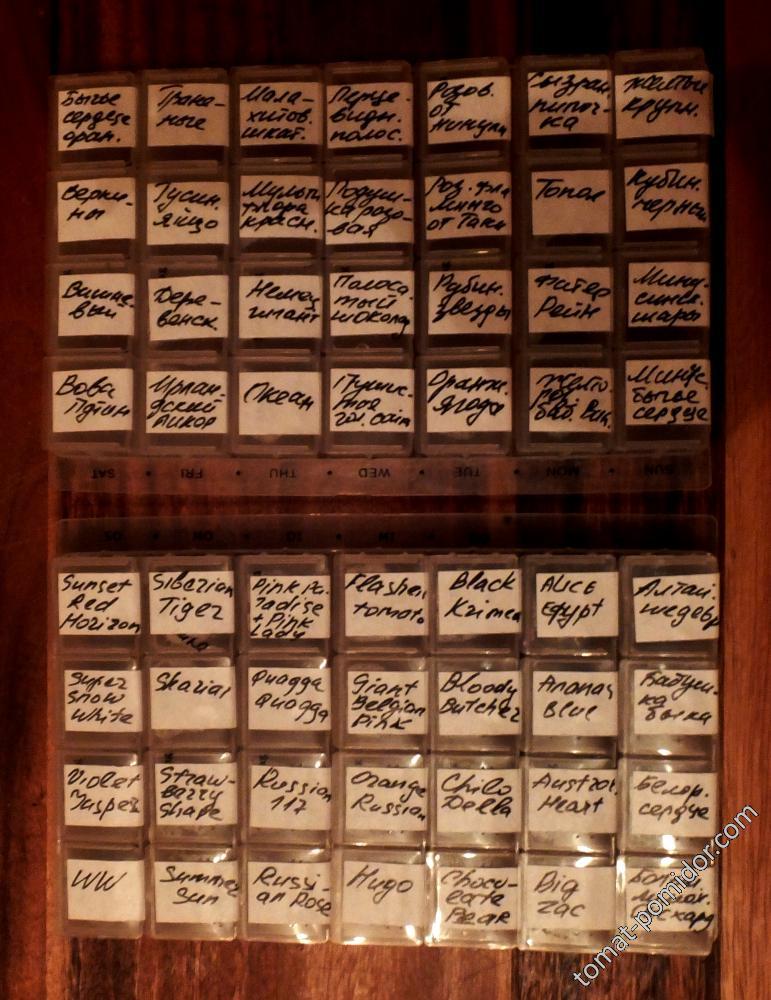 Бычье
сердце
оран.
Грана-
тные
Мала-
хитов.
шкат.
Перце-
видн.
полос.
Розов.
от
Сызран.
пипоч-
ка
Желтый
крупн.
Гусин.
яйцо
Мульти
флора
красн.
Подуш-
ка розо-
вая
Роз. фла
минго
от Тани
Топол
Кубин.
черный
Вишне-
вый
Дере-
венск.
Немец
гигант
Полоса-
тый
шоколад
Рубин.
звезды
Фатер
Рейн
Мину-
синск.
шары
Вова
Путин
Ирлан-
дский
ликер
Океан
Пушис-
тое
Оранж.
ягода
Желто
Бычье
сердце
SAT FRI THU WED TUE MON SUN
Sunset
Red
Horizon
Siberian
Tiger
Pink Pa-
radise
+ Pink
Lady
Flashe
tomato
Black
Krimea
ALICE
Egypt
Алтай.
шедевр
Super
Snow
White
Skazial
Quagga
Quagga
Giant
Belgion
Pink
Bloody
Butcher
Ananas
Blue
Бабуш-
ка
Violet
Jasper
Straw-
berry
Shape
Russion
117
Orange
Russion
Chilo
Della
Austrol.
Heart
Белор.
сердце
WW
Summer
Sun
Russi-
an Rose
Hugo
Choco-
late
Pear
Big
Zac
tomat-pomidor.com